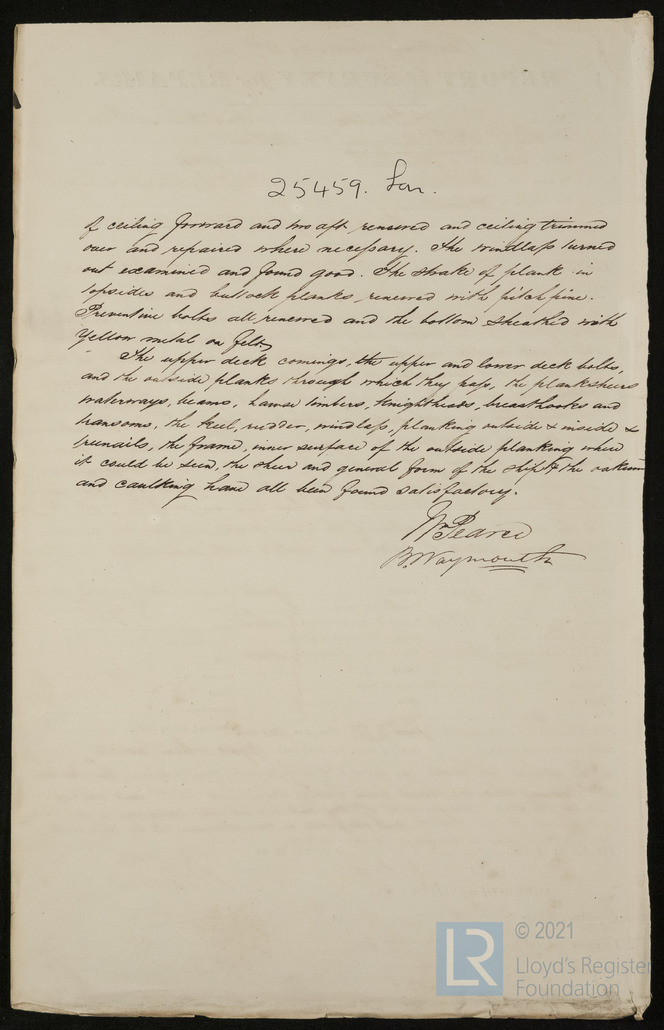 25459. Lon.
of ceiling forward and two aft renewed and ceiling trimmed
over and repaired where necessary. The windlass turned
out examined and found good. The strake of plank in
topsides and buttock planks renewed with pitch pine.
Preventive bolts all renewed and the bottom sheathed with
Yellow metal on felt.
The upper deck comings, the upper and lower deck bolts,
and the outside planks through which they pass, the planksheers
waterways, beams, hawse timbers, knightheads, breasthooks and
transoms, the keel, rudder, windlass, planking outside & inside &
treenails, the frame, inner surface of the outside planking where
it could be seen, the sheer and general form of the ship & the oakum
and caulking have all been found satisfactory.
Wm Pearce
B. Waymouth
LR
© 2021
Lloyd's Register
Foundation